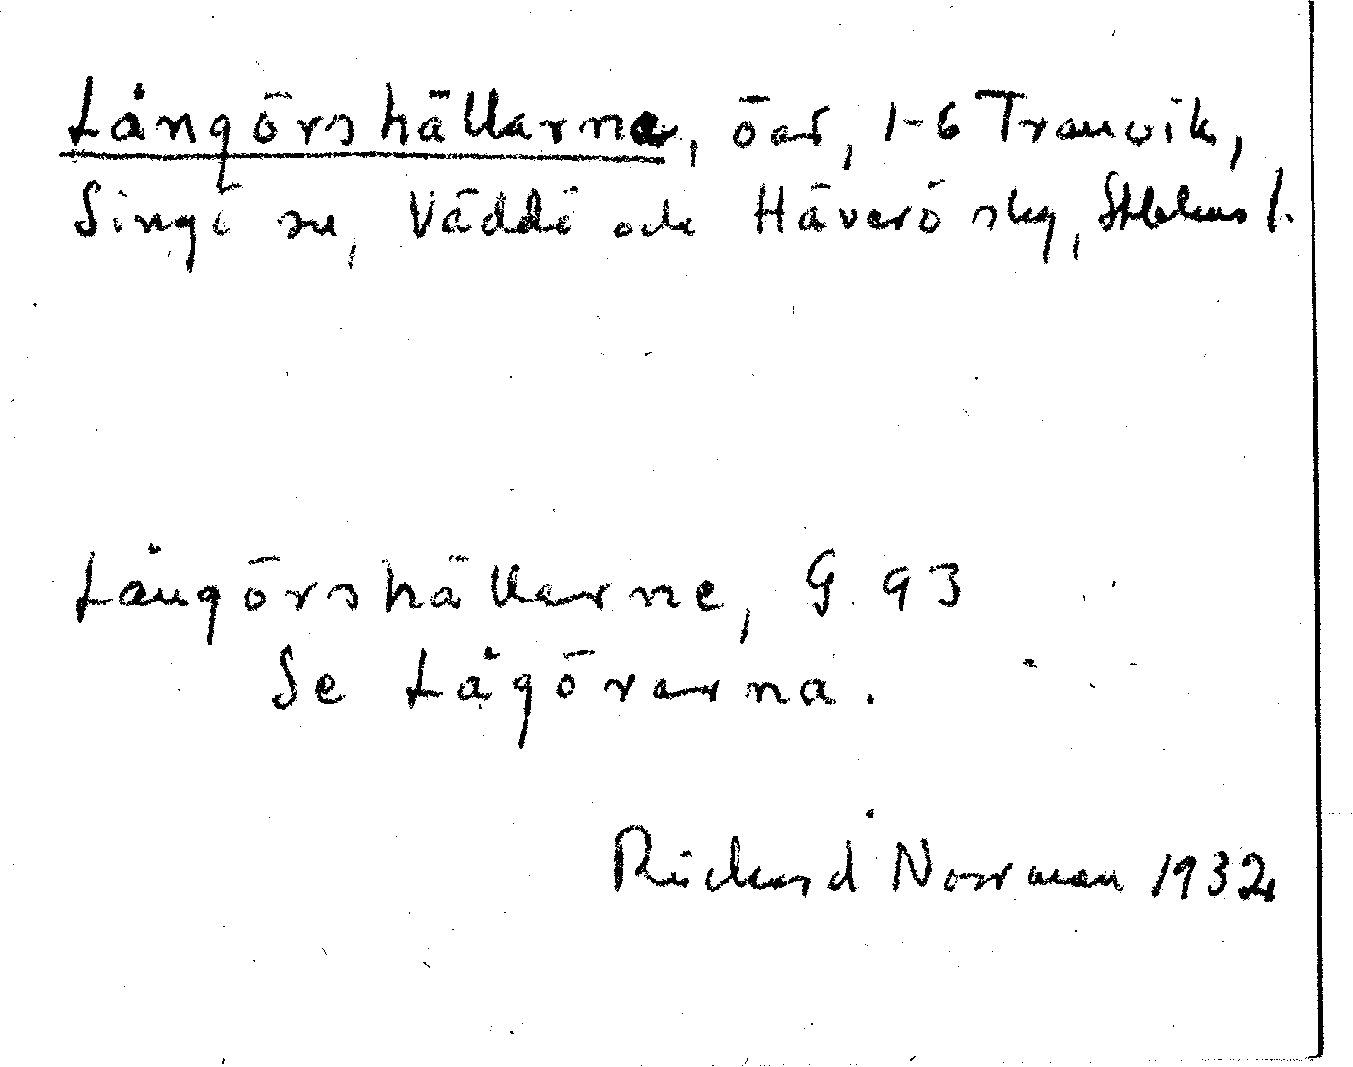 Långörshällarna, öar, 1-6 Tranvik,
Singö sn, Väddö och Häverö skg, Sthlms l.
Långörshällarne, G 93
Se Lågörarna.
Rickard Norrman 1932